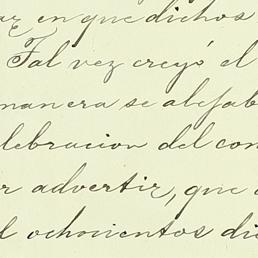 ar en que dichos
Tal vez creyó el
manera se alejab
lebracion del con
r advertir, que
l ochocientos die